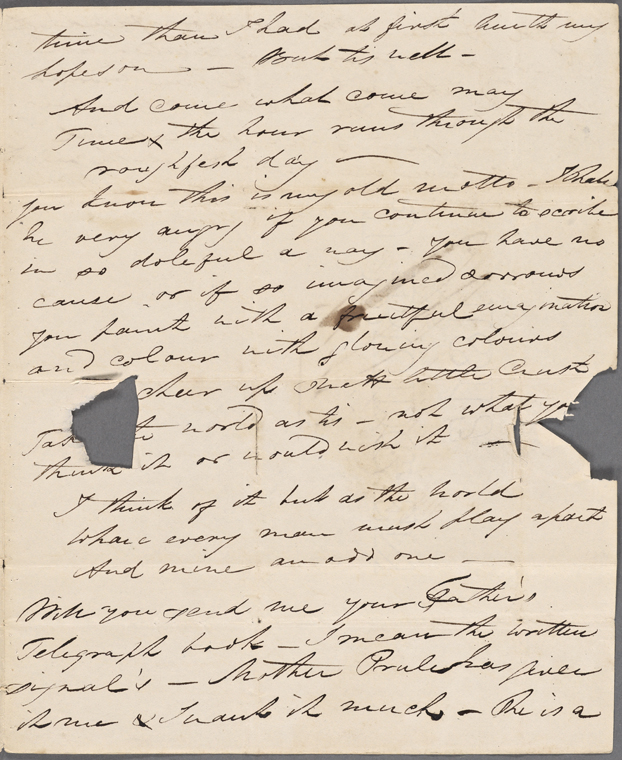 time than I had at first built my
hopes on — But tis well —
And come what come may
Time & the hour runs through the
roughfesh day —
you know this is my old motto — I shall
be very angry if you continue to scribe
in so doleful a way — you have no
cause or if so imagined sorrows
you paint with a fruitful imagination
and colour with glowing colours
cheer up little
Take the world as tis — not what you
think it or would wish it —
I think of it but as the World
Whare every man must play a part
And mine an odd one —
Will you send me your Father's
Telegraph book — I mean the written
signal's — Mother has given
it me & I want it much — She is a